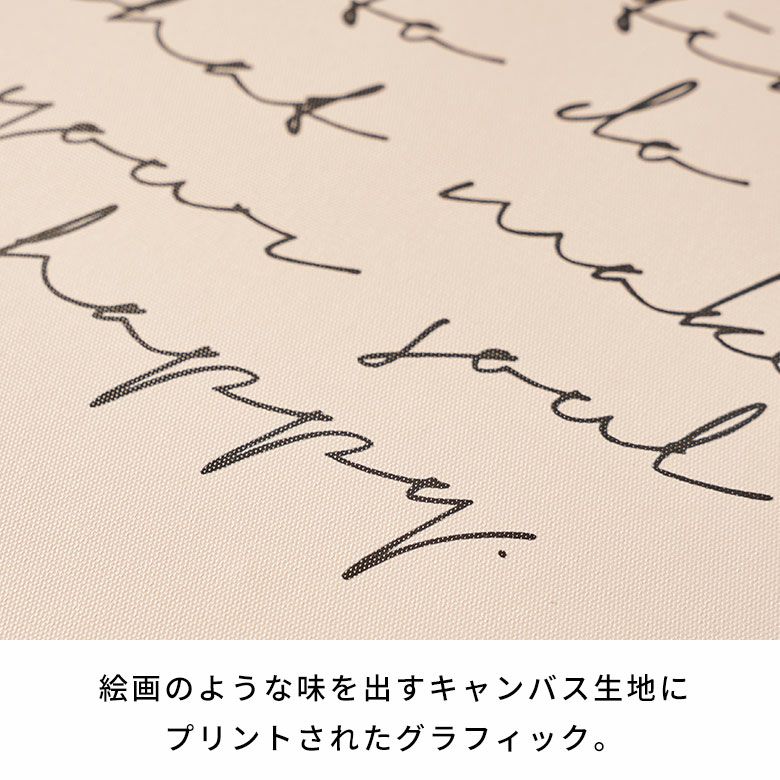 what do
your make
happy soul
.
絵画のような味を出すキャンバス生地に
プリントされたグラフィック。